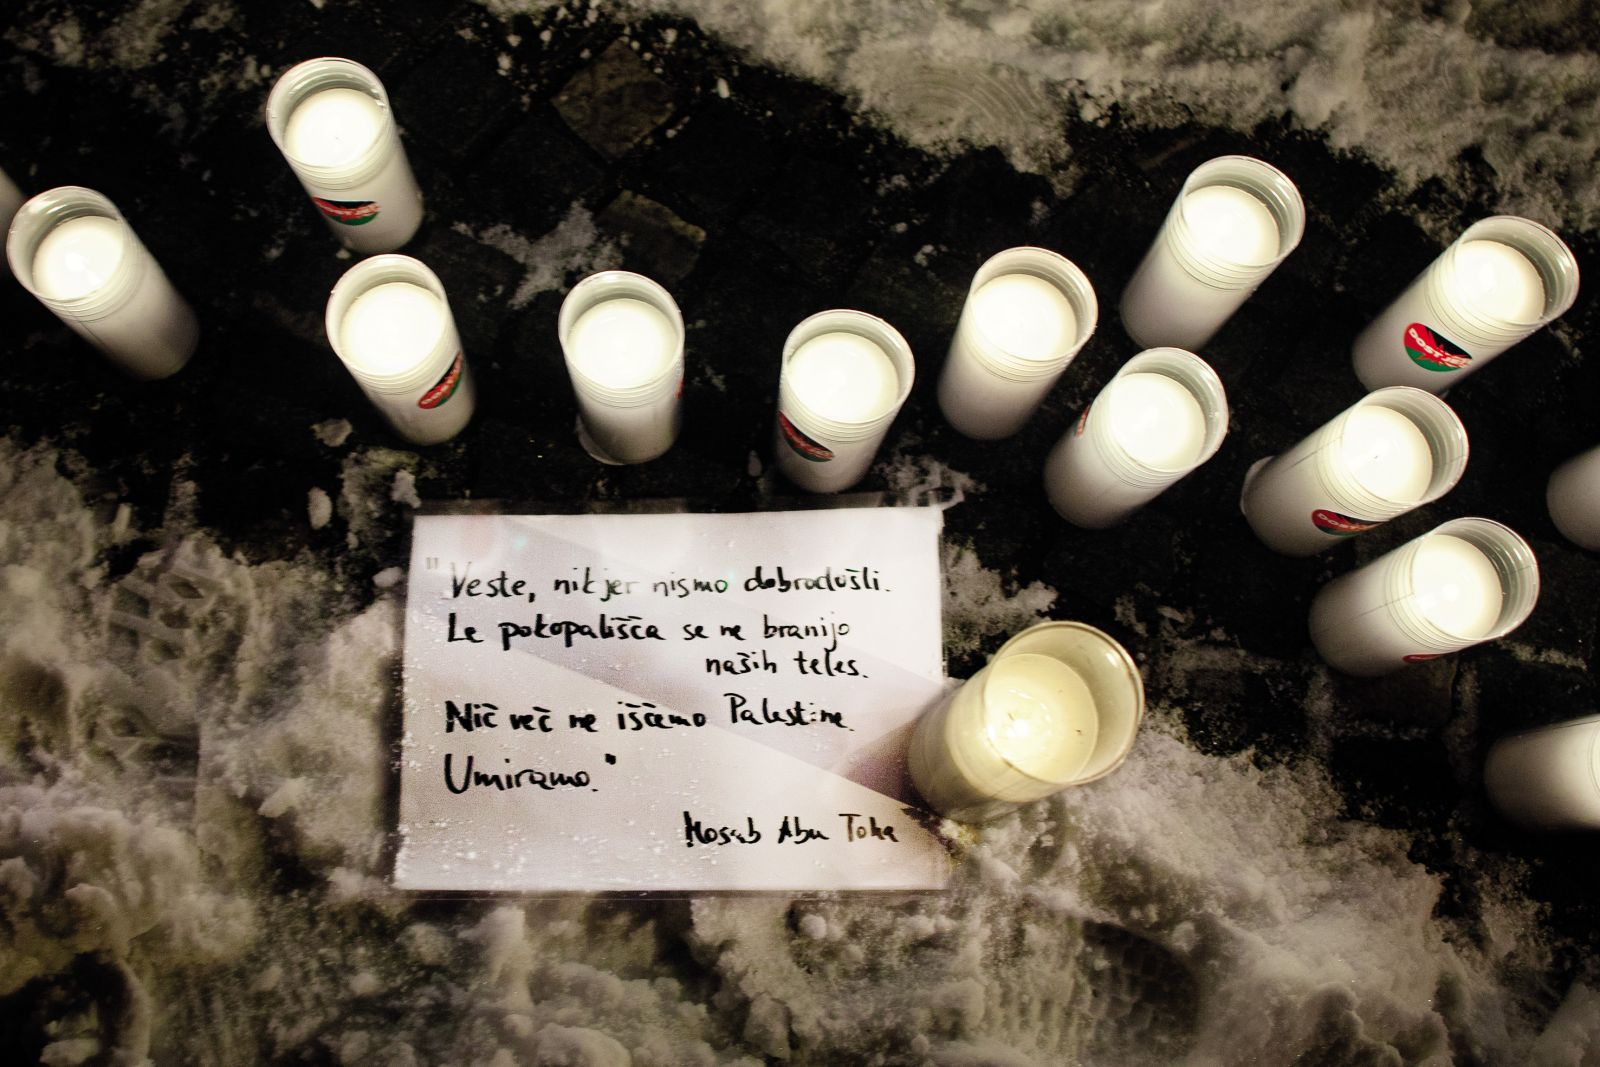 DOST JE
DOST JE
DOST JE
"Veste, nikjer nismo dobrodošli.
Le pokopališča se ne branijo
naših teles.
Nič več ne iščemo Palestine.
Umiramo."
Mosab Abu Toha